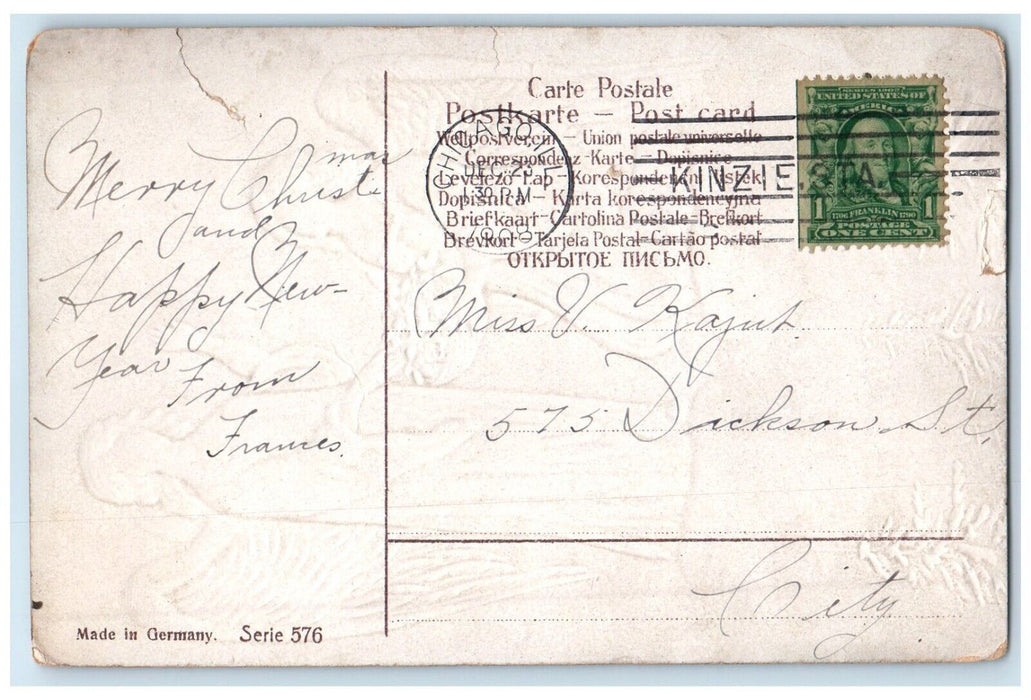 Merry Christmas
and
Happy New
Year
From
Frances.
Carte Postale
Postkarte – Post card
Weltpostverein – Union postale universelle
Correspondenz-Karte – Dopisnice
Levelező Lap – Korespondenční lístek
Dopisnica – Karta korespondencyjna
Briefkaart – Cartolina Postale – Brefkort
Brevkort – Tarjeta Postal – Cartão postal
ОТКРЫТОЕ ПИСЬМО.
CHICAGO, ILL.
DEC 25
1 30 PM
1908
KINZIE STA.
SERIES 1902
UNITED STATES OF
AMERICA
1 1706 FRANKLIN 1790
POSTAGE
ONE CENT
Miss V. Kajut
575 Dickson St.
City
Made in Germany. Serie 576